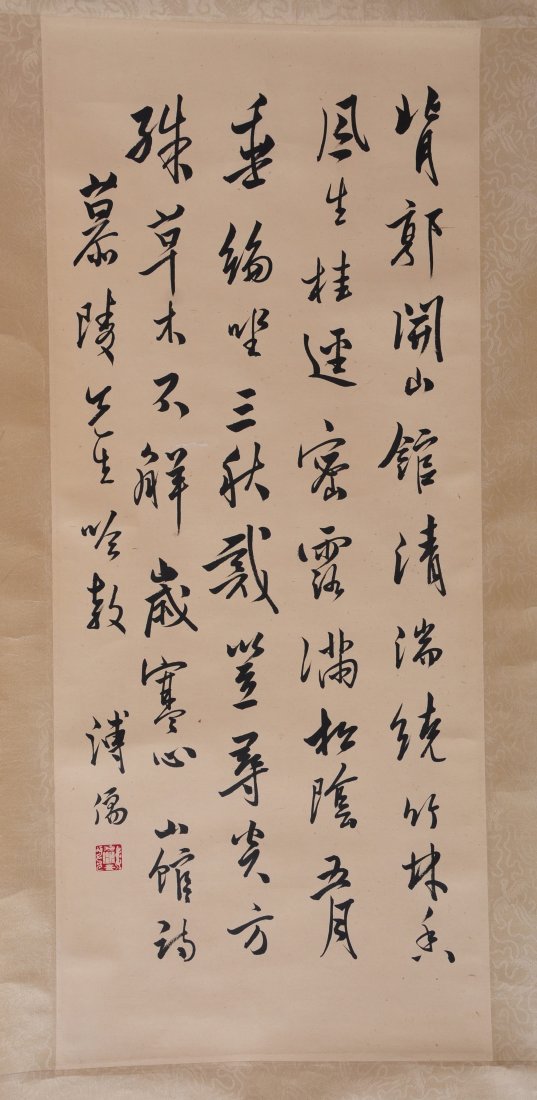 背郭開山館清湍繞竹林香
風生桂逕密露滿松陰五月
垂綸坐三秋戴笠尋炎方
殊草木不解歲寒心 山館詩
慕陵先生吟教 溥儒